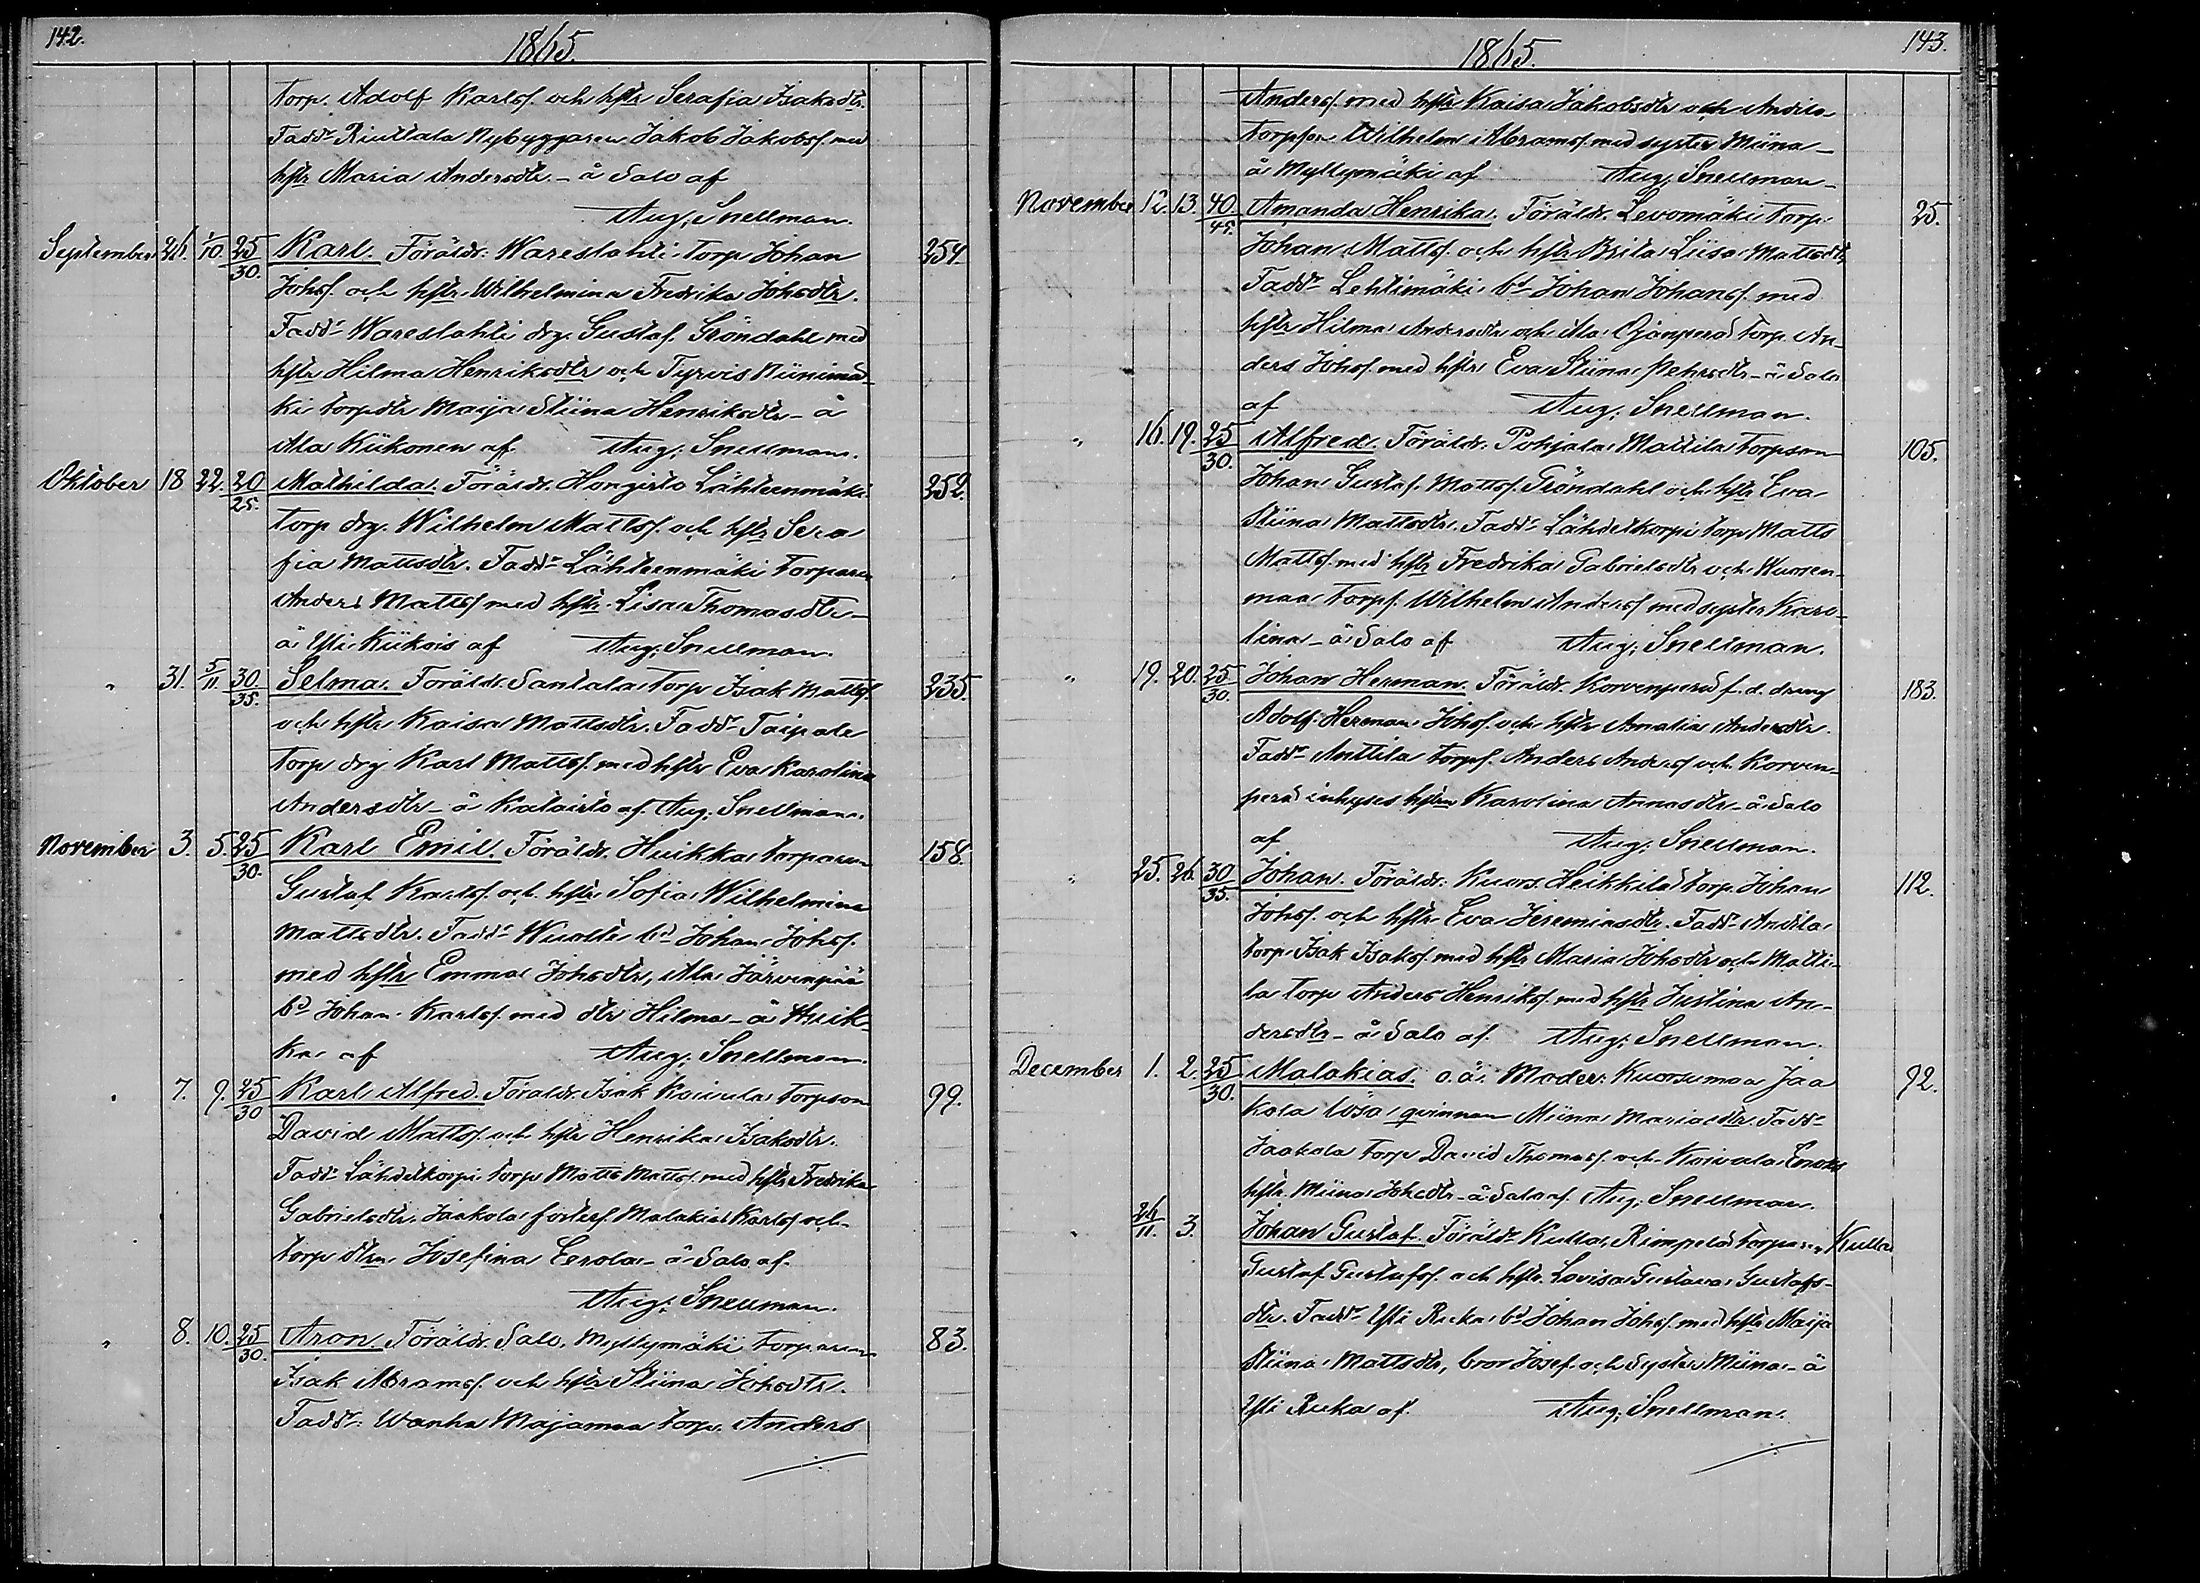 142.
1865.
torp. Adolf Karlsf. och hstr Serafia Isaksdtr.
Fadd:r Riuttala Nybyggaren Jakob Jakobsf. med
hstr Maria Andersdtr - å Salo af
Aug: Snellman.
September 26. 1/10. 25/30. Karl. Föräldr: Wareslahti torp Johan 254.
Johsf. och hstr. Wilhelmina Fredrika Johsdtr.
Fadd:r Wareslahti drg. Gustaf Gröndahl med
hstr Hilma Henriksdtr och Tyrvis Niinimä-
ki torpdtr Maija Stiina Henriksdtr - å
Ala Kiikonen af Aug: Snellman.
Oktober 18 22. 20/25. Mathilda. Föräldr. Hongisto Lähteenmäki 252.
torp drg. Wilhelm Mattsf. och hstr Sera
fia Mattsdtr. Fadd:r Lähteenmäki Torparen
Anders Mattsf med hstr. Lisa Thomasdtr -
å Yli Kiikois af Aug: Snellman.
" 31. 5/11. 30/35. Selma. Föräldr. Santala torp Isak Mattsf. 235.
och hstr Kaisa Mattsdtr. Fadd:r Taipale
torp drg Karl Mattsf. med hstr Eva Karolina
Andersdtr - å Kalaisto af. Aug: Snellman.
November 3. 5. 25/30. Karl Emil. Föräldr. Huikka torparen 158.
Gustaf Karlsf. och hstr Sofia Wilhelmina
Mattsdtr. Fadd:r Wuolle bd Johan Johsf.
med hstr Emma Johsdtr, Ala Järvenpää
bd Johan Karlsf. med dtr Hilma - å Huik-
ka af Aug: Snellman.
" 7. 9. 25/30 Karl Alfred. Föräldr. Isak Koivula torpson 99.
David Mattsf. och hstr Henrika Isaksdtr.
Fadd:r Lähdekorpi torp Matts Mattsf. med hstr Fredrika
Gabrielsdtr. Jaakola fosterf. Malakias Karlsf och
torp dtrn Josefina Eerola - å Salo af.
Aug: Snellman.
" 8. 10. 25/30. Aron. Föräldr. Salo, Myllymäki torparen 83.
Isak Abramsf. och hstr Stiina Johsdtr.
Fadd:r Wanha Majamaa torp. Anders
143.
1865.
Andersf. med hstr Kaisa Jakobsdtr och Andila
torpson Wilhelm Abramsf. med syster Miina -
å Myllymäki af Aug: Snellman -
November 12. 13. 40/45. Amanda Henrika. Föräldr. Levomäki torp. 25.
Johan Mattsf. och hstr Brita Liisa Mattsdtr,
Fadd:r Lehtimäki bd Johan Johansf. med
hstr Hilma Andersdtr och Ala Ojanperä torp. An-
ders Johsf. med hstr Eva Stiina Pehrsdtr - å Salo
af Aug: Snellman.
" 16. 19. 25/30. Alfred. Föräldr. Pohjala Mattila torpson 105.
Johan Gustaf Mattsf. Gröndahl och hstr Eva
Stiina Mattsdtr. Fadd:r Lähdekorpi torp Matts
Mattsf. med hstr Fredrika Gabrielsdtr och Wuoren-
maa torpf. Wilhelm Andersf med syster Karo-
lina - å Salo af Aug: Snellman.
" 19. 20. 25/30. Johan Herman. Föräldr. Korvenperä f. d. dreng 183.
Adolf Herman Johsf. och hstr Amalia Andersdtr.
Fadd:r Anttila torpf. Anders Andersf och Korven-
perä inhyses hstrn Karolina Annasdtr - å Salo
af Aug: Snellman.
" 25. 26. 30/35. Johan. Föräldr. Kuors. Heikkilä torp. Johan 112.
Johsf. och hstr. Eva Jeremiasdtr. Fadd:r Andila
torp. Isak Isaksf. med hstr Maria Johsdtr och Matti-
la torp Anders Henriksf. med hstr Justina An-
dersdtr - å Salo af. Aug: Snellman.
December 1. 2. 25/30. Malakias. o.ä. Moder: Kuorsumaa Jaa 92.
kola lösa qvinnan Miina Mariasdtr. Fadd:r
Jaakola torp David Thomasf. och Koivula Enoks
hstr. Miina Johsdtr - å Salo af. Aug: Snellman.
" 26/11. 3. Johan Gustaf. Föräldr Kullaa, Rimpelä torparen Kullaa
Gustaf Gustafsf. och hstr. Lovisa Gustava Gustafs-
dtr. Fadd:r Yli Ruka bd Johan Johsf. med hstr Maija
Stiina Mattsdtr, bror Josef och Syster Miina - å
Yli Ruka af. Aug: Snellman.